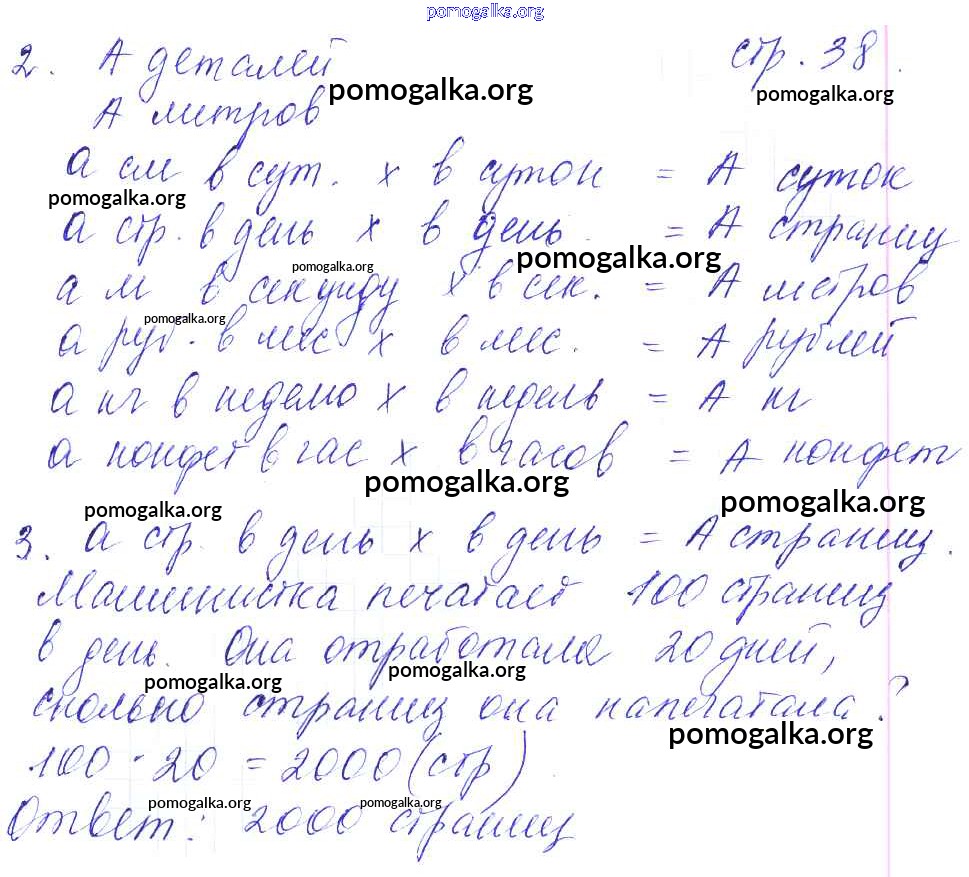 pomogalka.org
2. А деталей стр. 38.
pomogalka.org pomogalka.org
А литров
а см в сут. х в суток = А суток
pomogalka.org
а стр. в день х в день = А страниц
pomogalka.org pomogalka.org
а м в секунду х в сек. = А метров
pomogalka.org
а руб. в мес х в мес. = А рублей
а кг в неделю х в недель = А кг
а конфет в час х в часов = А конфет
pomogalka.org pomogalka.org
pomogalka.org
3. а стр. в день х в день = А страниц.
Машинистка печатает 100 страниц
в день. Она отработала 20 дней,
pomogalka.org pomogalka.org
сколько страниц она напечатала?
pomogalka.org
100 · 20 = 2000 (стр)
pomogalka.org pomogalka.org
Ответ: 2000 страниц